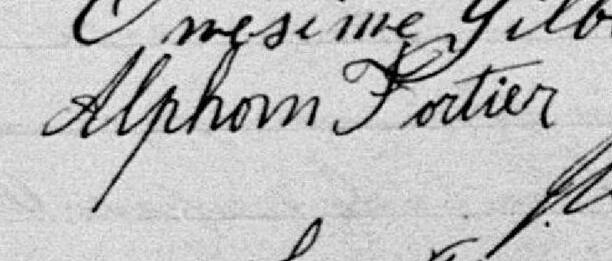 Onesime Gilb
Alphom Fortier